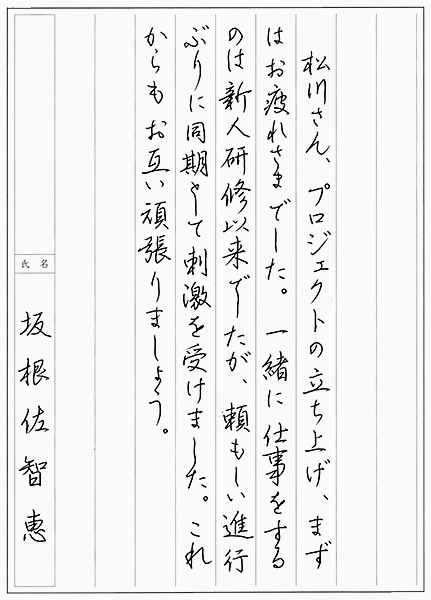 松川さん、プロジェクトの立ち上げ、まず
はお疲れさまでした。一緒に仕事をする
のは新人研修以来でしたが、頼もしい進行
ぶりに同期として刺激を受けました。これ
からもお互い頑張りましょう。
氏名
坂根佐智恵